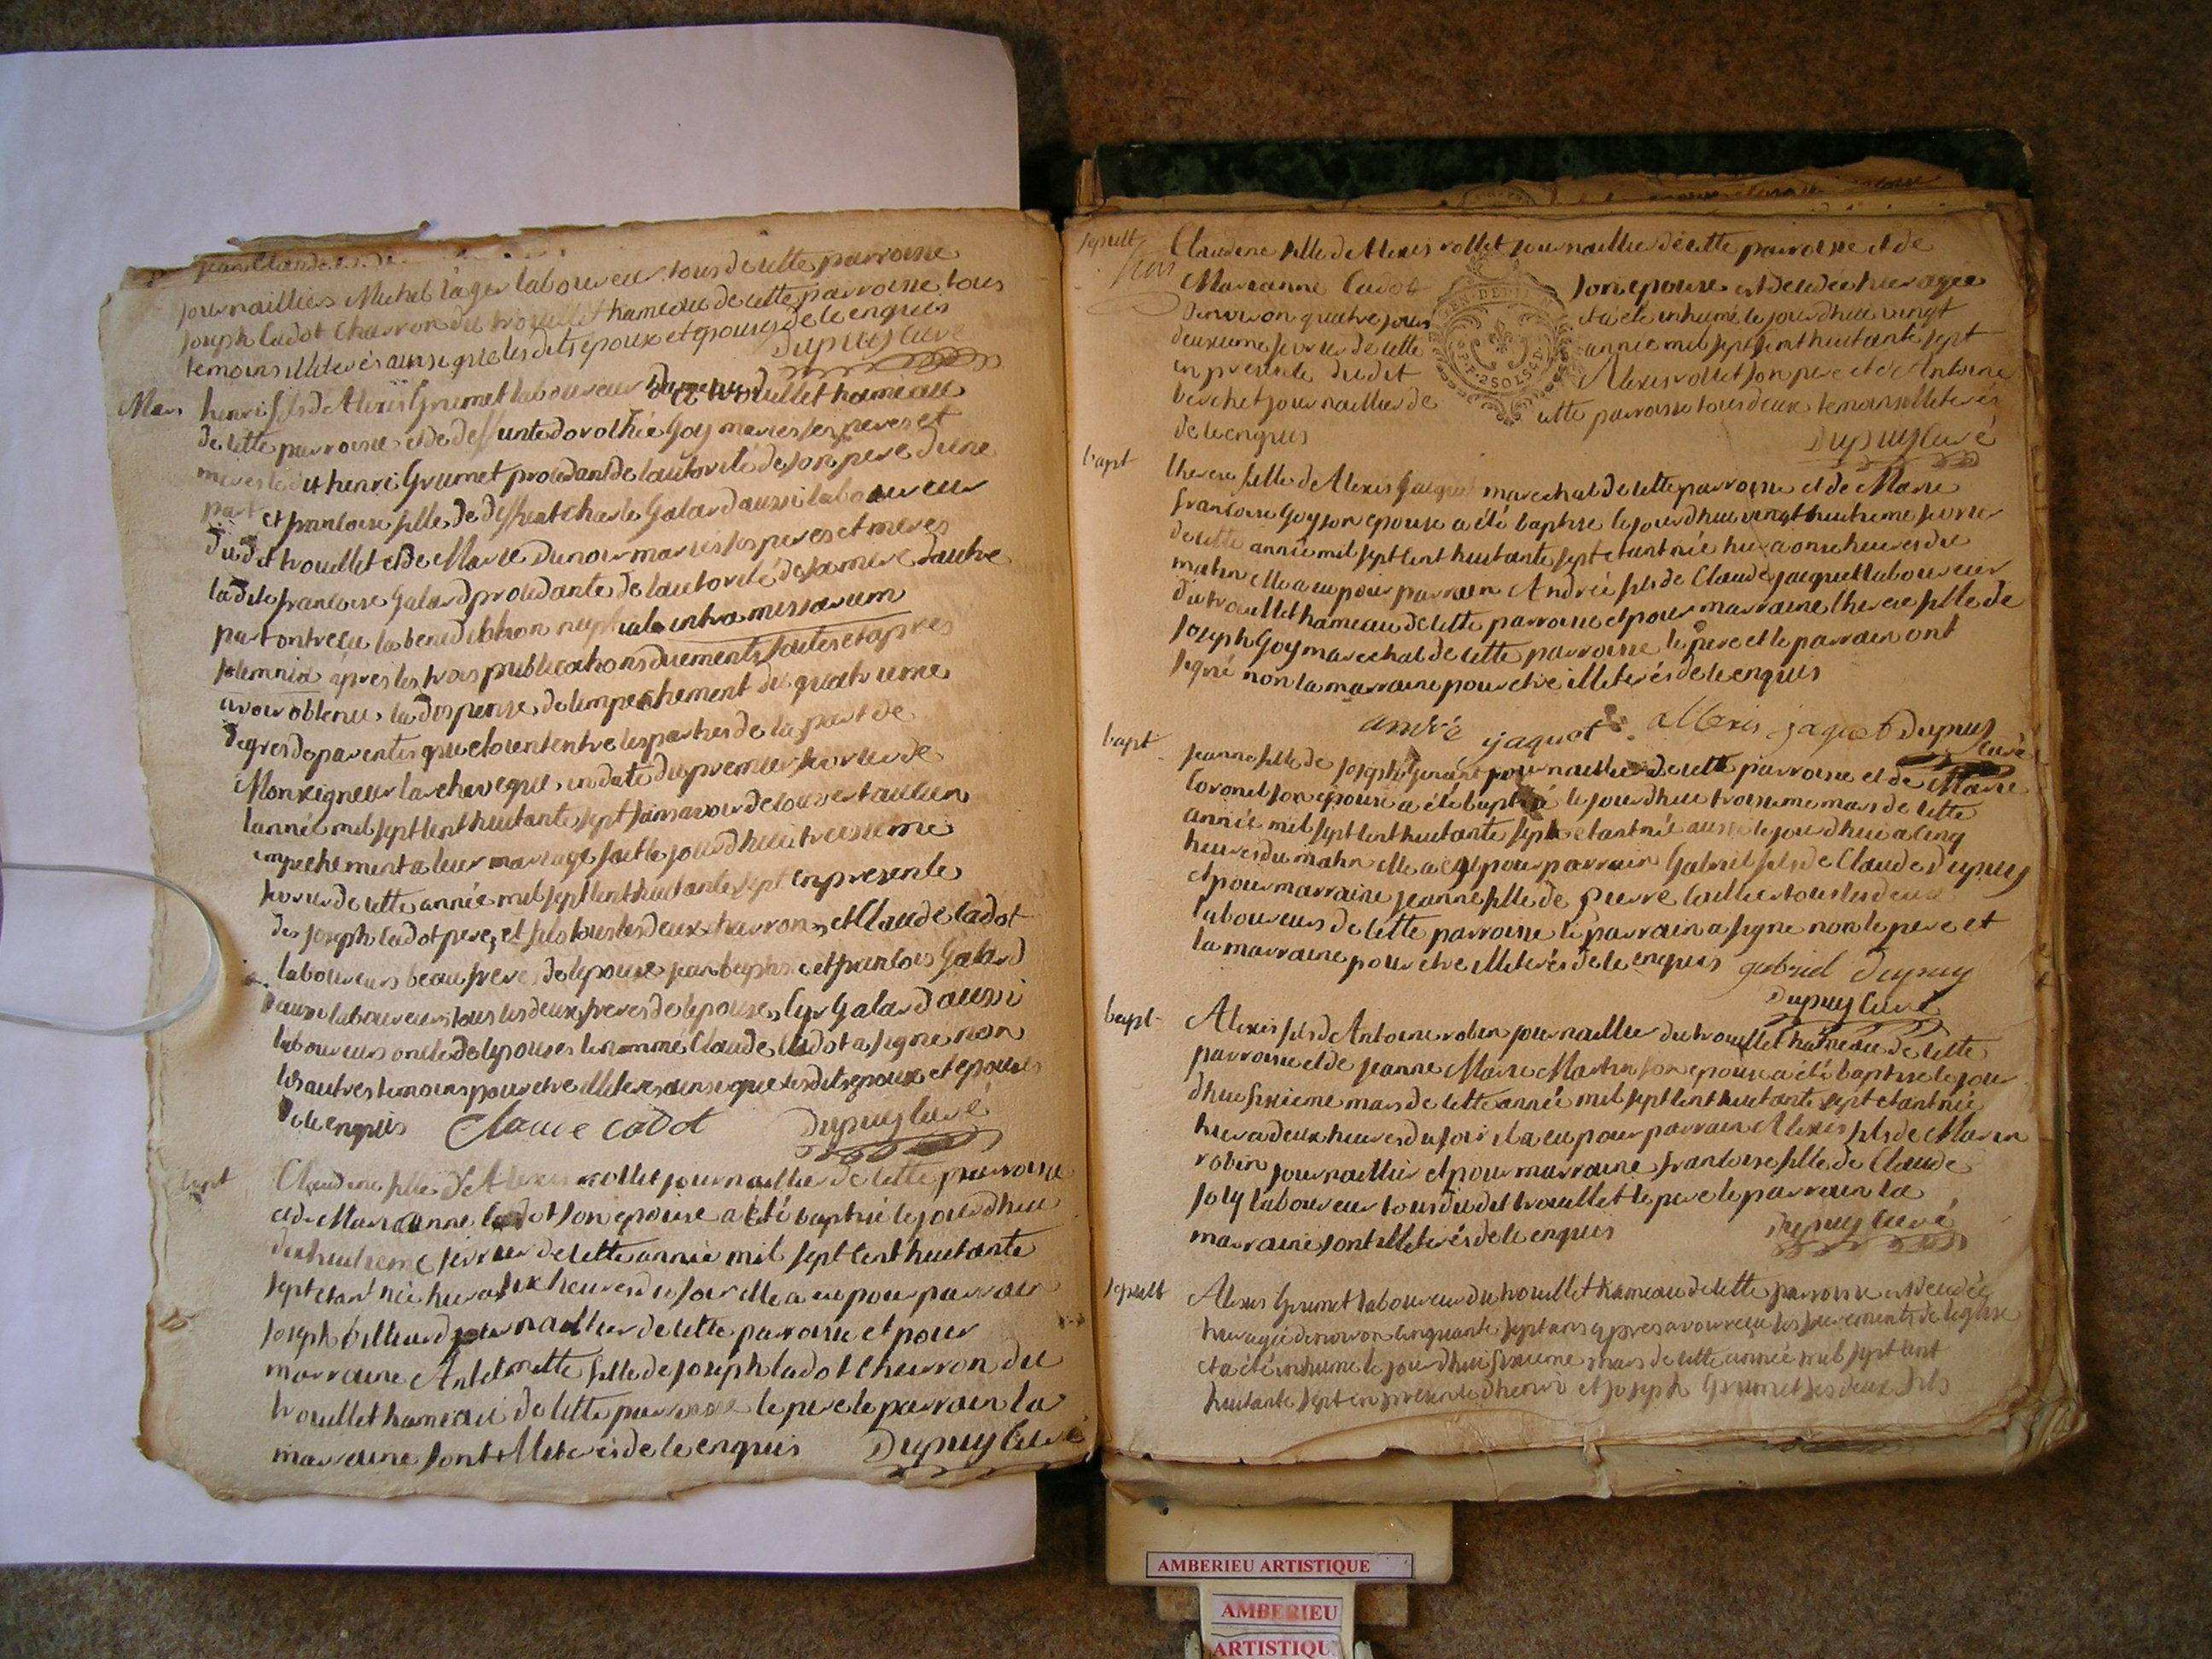 journailliers Michel lager laboureur tous de cette parroisse
joseph Cadot Charron du trouillet hameau de cette parroisse tous
temoins illiterés ainsi que les dits epoux et epouses de ce enquis
Dupuy Curé
Mari henri fils de Alexis Grumet laboureur du trouillet hameau
de cette parroisse et de deffunte dorothée Goy mariés ses peres et
meres le dit henri Grumet procedant de lautorité de son pere dune
part et francoise fille de deffunt charle Galard aussi laboureur
du dit trouillet et de Marie Dunour mariés ses peres et meres
la dite francoise Galard procedante de lautorité de sa mere dautre
part ont recu la benediction nuptiale intra missarum
solemnia après les trois publications duements faites et apres
avoir obtenu la dispense de lempechement du quatrieme
degres de parentés qui etoient entre les parties de la part de
Monseigneur larcheveque en date du premier fevrier de
lannée mil sept cent huitante sept sans avoir decouvert aucun
empechement a leur mariage fait le jourdhui treisieme
fevrier de cette année mil sept cent huitante sept en presence
de joseph Cadot pere et fils tous les deux charrons et Claude Cadot
laboureurs beau frere de lepouse jean baptiste et francois Galard
aussi laboureurs tous les deux freres de lepouse Cyr Galard aussi
laboureurs oncle de lepouses le nommé Claude Cadot a signe non
les autres temoins pour etre illiteres ainsi que les dits epoux et epouses
de ce enquis Claude cadot Dupuy Curé
bapt Claudine fille d'Alexis rollet journaillier de cette parroisse
et de Marianne Cadot son epouse a été baptisé le jourdhui
dixhuitieme fevrier de cette année mil sept cent huitante
sept etant née hier a six heures du soir elle a eu pour parrain
joseph journaillier de cette parroisse et pour
marraine Antelmette fille de joseph Cadot Charron du
trouillet hameau de cette parroisse le pere le parrain la
marraine sont illiterés de ce enquis Dupuy Curé
sepult Claudine fille de Alexis rollet journaillier de cette parroisse et de
Marianne Cadot son epouse est decedée hier agée
denviron quatre jours et a été inhumé le jourdhui vingt
deuxieme fevrier de cette année mil sept cent huitante sept
en presence du dit Alexis rollet son pere et d'Antoine
berchet journaillier de cette parroisse tous deux temoins illiterés
de ce enquis Dupuy Curé
GEN. DE
2 SOLS
bapt therese fille de Alexis jaquet marechal de cette parroisse et de Marie
francoise Goy son epouse a été baptisé le jourdhui vingt huitieme fevrier
de cette année mil sept cent huitante sept etant née hier a onse heures du
matin elle a eu pour parrain André fils de Claude jacquet laboureur
du trouillet hameau de cette parroisse et pour marraine therese fille de
joseph Goy marechal de cette parroisse le pere et le parrain ont
signé non la marraine pour etre illiterés de ce enquis
andré jaquet allexis jaquet Dupuy
curé
bapt jeanne fille de joseph journaillier de cette parroisse et de Marie
Coronel son epouse a été baptisé le jourdhui troisieme mars de cette
année mil sept cent huitante sept etant née aussi le jourdhui a cinq
heures du matin elle a eu pour parrain Gabriel fils de Claude Dupuy
et pour marraine jeanne fille de pierre Cuillier tous les deux
laboureurs de cette parroisse le parrain a signe non le pere et
la marraine pour etre illiterés de ce enquis gabriel Dupuy
Dupuy Curé
bapt Alexis fils de Antoine robin journaillier du trouillet hameau de cette
parroisse et de jeanne Marie Martin son epouse a été baptise le jour
dhui sixieme mars de cette année mil sept cent huitante sept etant née
hier a deux heures du soir il a eu pour parrain Alexis fils de Marin
robin journaillier et pour marraine francoise fille de Claude
joly laboureur tous du dit trouillet le pere le parrain la
marraine sont illiterés de ce enquis Dupuy Curé
sepult Alexis Grumet laboureur du trouillet hameau de cette parroisse est decedée
hier agée denviron cinquante sept ans apres avoir reçu les sacrements de leglise
et a été inhumé le jourdhui sixieme mars de cette année mil sept cent
huitante sept en presence dhenri et joseph Grumet ses deux fils
AMBERIEU ARTISTIQUE
AMBERIEU
ARTISTIQU